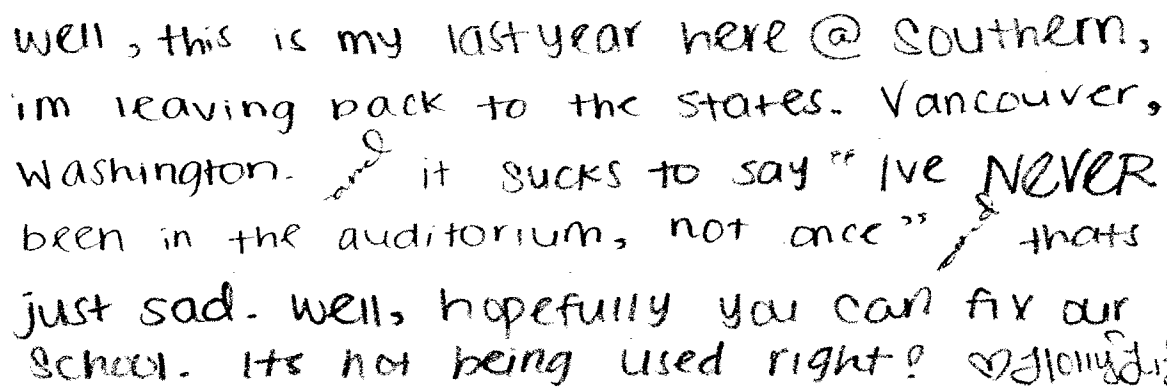 well, this is my last year here @ Southern,
im leaving back to the states. Vancouver,
Washington. and it sucks to say "Ive NEVER
been in the auditorium, not once" and thats
just sad. Well, hopefully you can fix our
School. Its not being used right! ♡